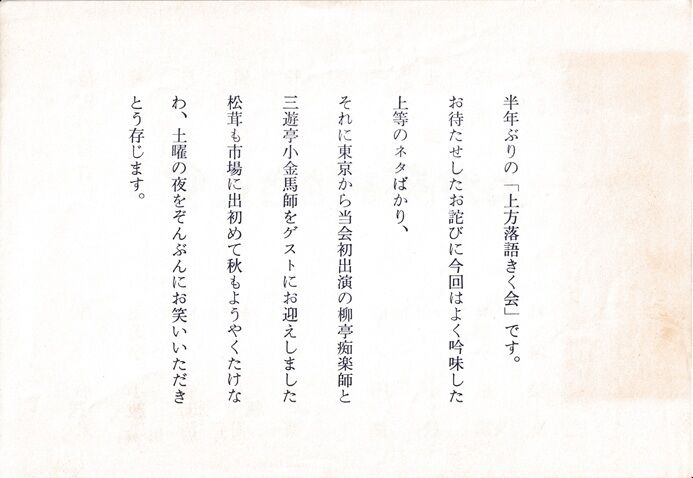 半年ぶりの「上方落語きく会」です。
お待たせしたお詫びに今回はよく吟味した
上等のネタばかり、
それに東京から当会初出演の柳亭痴楽師と
三遊亭小金馬師をゲストにお迎えしました
松茸も市場に出初めて秋もようやくたけな
わ、土曜の夜をぞんぶんにお笑いいただき
とう存じます。